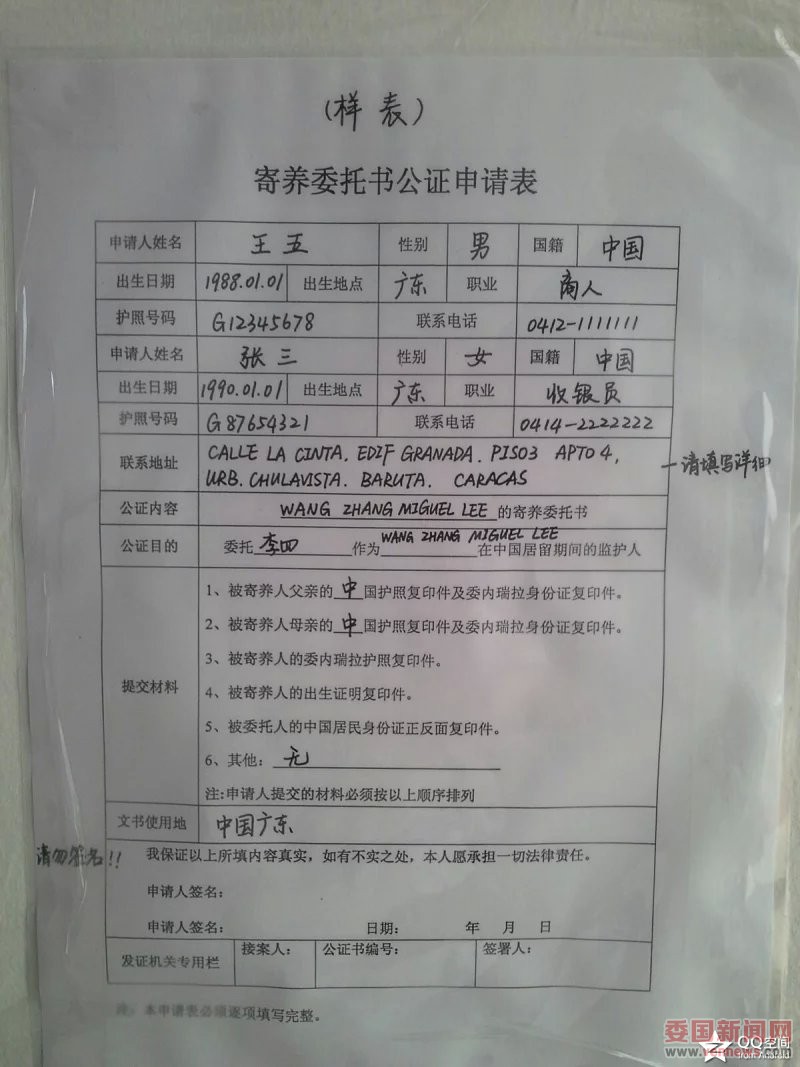 (样 表)
寄养委托书公证申请表
申请人姓名 王五 性别 男 国籍 中国
出生日期 1988.01.01 出生地点 广东 职业 商人
护照号码 G12345678 联系电话 0412-1111111
申请人姓名 张三 性别 女 国籍 中国
出生日期 1990.01.01 出生地点 广东 职业 收银员
护照号码 G87654321 联系电话 0414-2222222
联系地址 CALLE LA CINTA. EDIF GRANADA. PISO3 APTO 4,
URB. CHULAVISTA. BARUTA. CARACAS
一请填写详细
公证内容 WANG ZHANG MIGUEL LEE 的寄养委托书
公证目的 委托李四作为WANG ZHANG MIGUEL LEE在中国居留期间的监护人
提交材料
1、被寄养人父亲的中国护照复印件及委内瑞拉身份证复印件。
2、被寄养人母亲的中国护照复印件及委内瑞拉身份证复印件。
3、被寄养人的委内瑞拉护照复印件。
4、被寄养人的出生证明复印件。
5、被委托人的中国居民身份证正反面复印件。
6、其他：无
注:申请人提交的材料必须按以上顺序排列
文书使用地 中国广东
请勿签名!!
我保证以上所填内容真实，如有不实之处，本人愿承担一切法律责任。
申请人签名：
申请人签名： 日期： 年 月 日
发证机关专用栏 接案人： 公证书编号： 签署人：
注：本申请表必须逐项填写完整。
委国新闻网
QQ空间